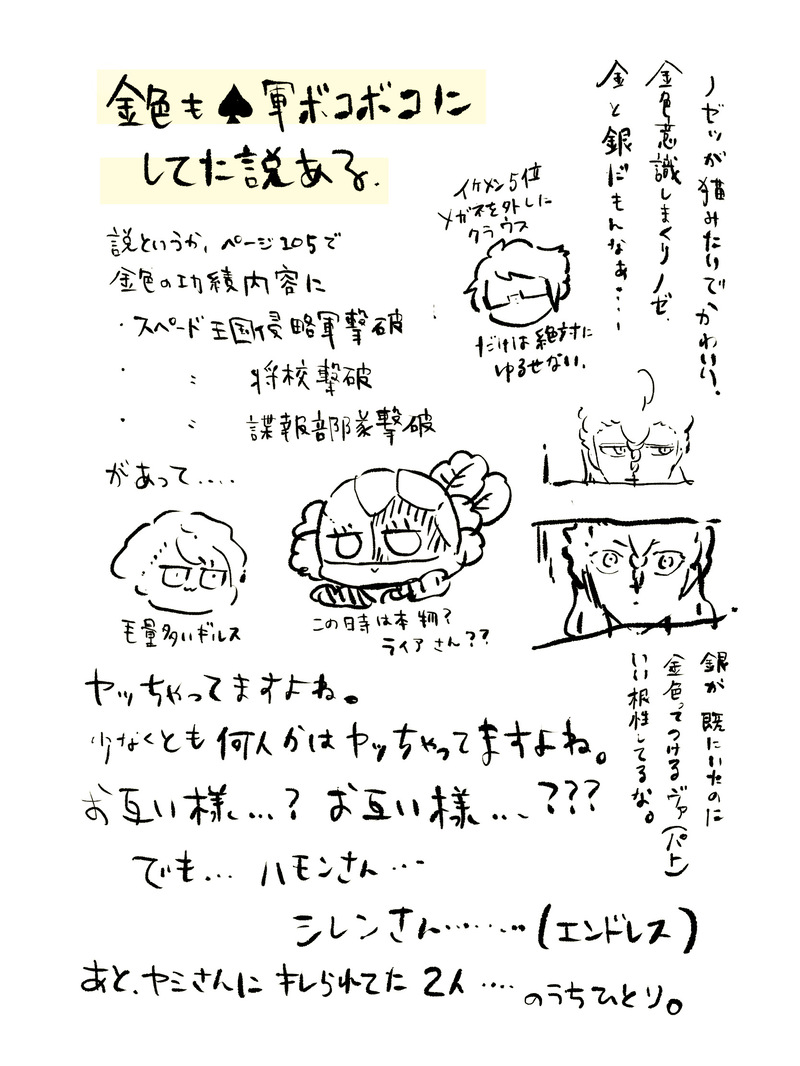 金色も♠軍ボコボコに
してた説ある.
説というか、ページ105で
金色の功績内容に
・スペード王国侵略軍撃破
・ 〃 将校撃破
・ 〃 諜報部隊撃破
があって.....
毛量多いギルス
この時は本物?
ライアさん??
イケメン5位
メガネを外した
クラウス
だけは絶対に
ゆるせない.
ノゼッが猫みたいで、かわいい.
金色意識しまくりノゼ.
金と銀だもんなぁ・・・ー
銀が既にいたのに
金色ってつけるヴァ(パト)
いい根性してるな。
ヤッちゃってますよね。
少なくとも何人かはヤッちゃってますよね。
お互い様...? お互い様...???
でも... ハモンさん...
シレンさん........(エンドレス)
あと、ヤミさんにキレられてた2人....
のうちひとり。